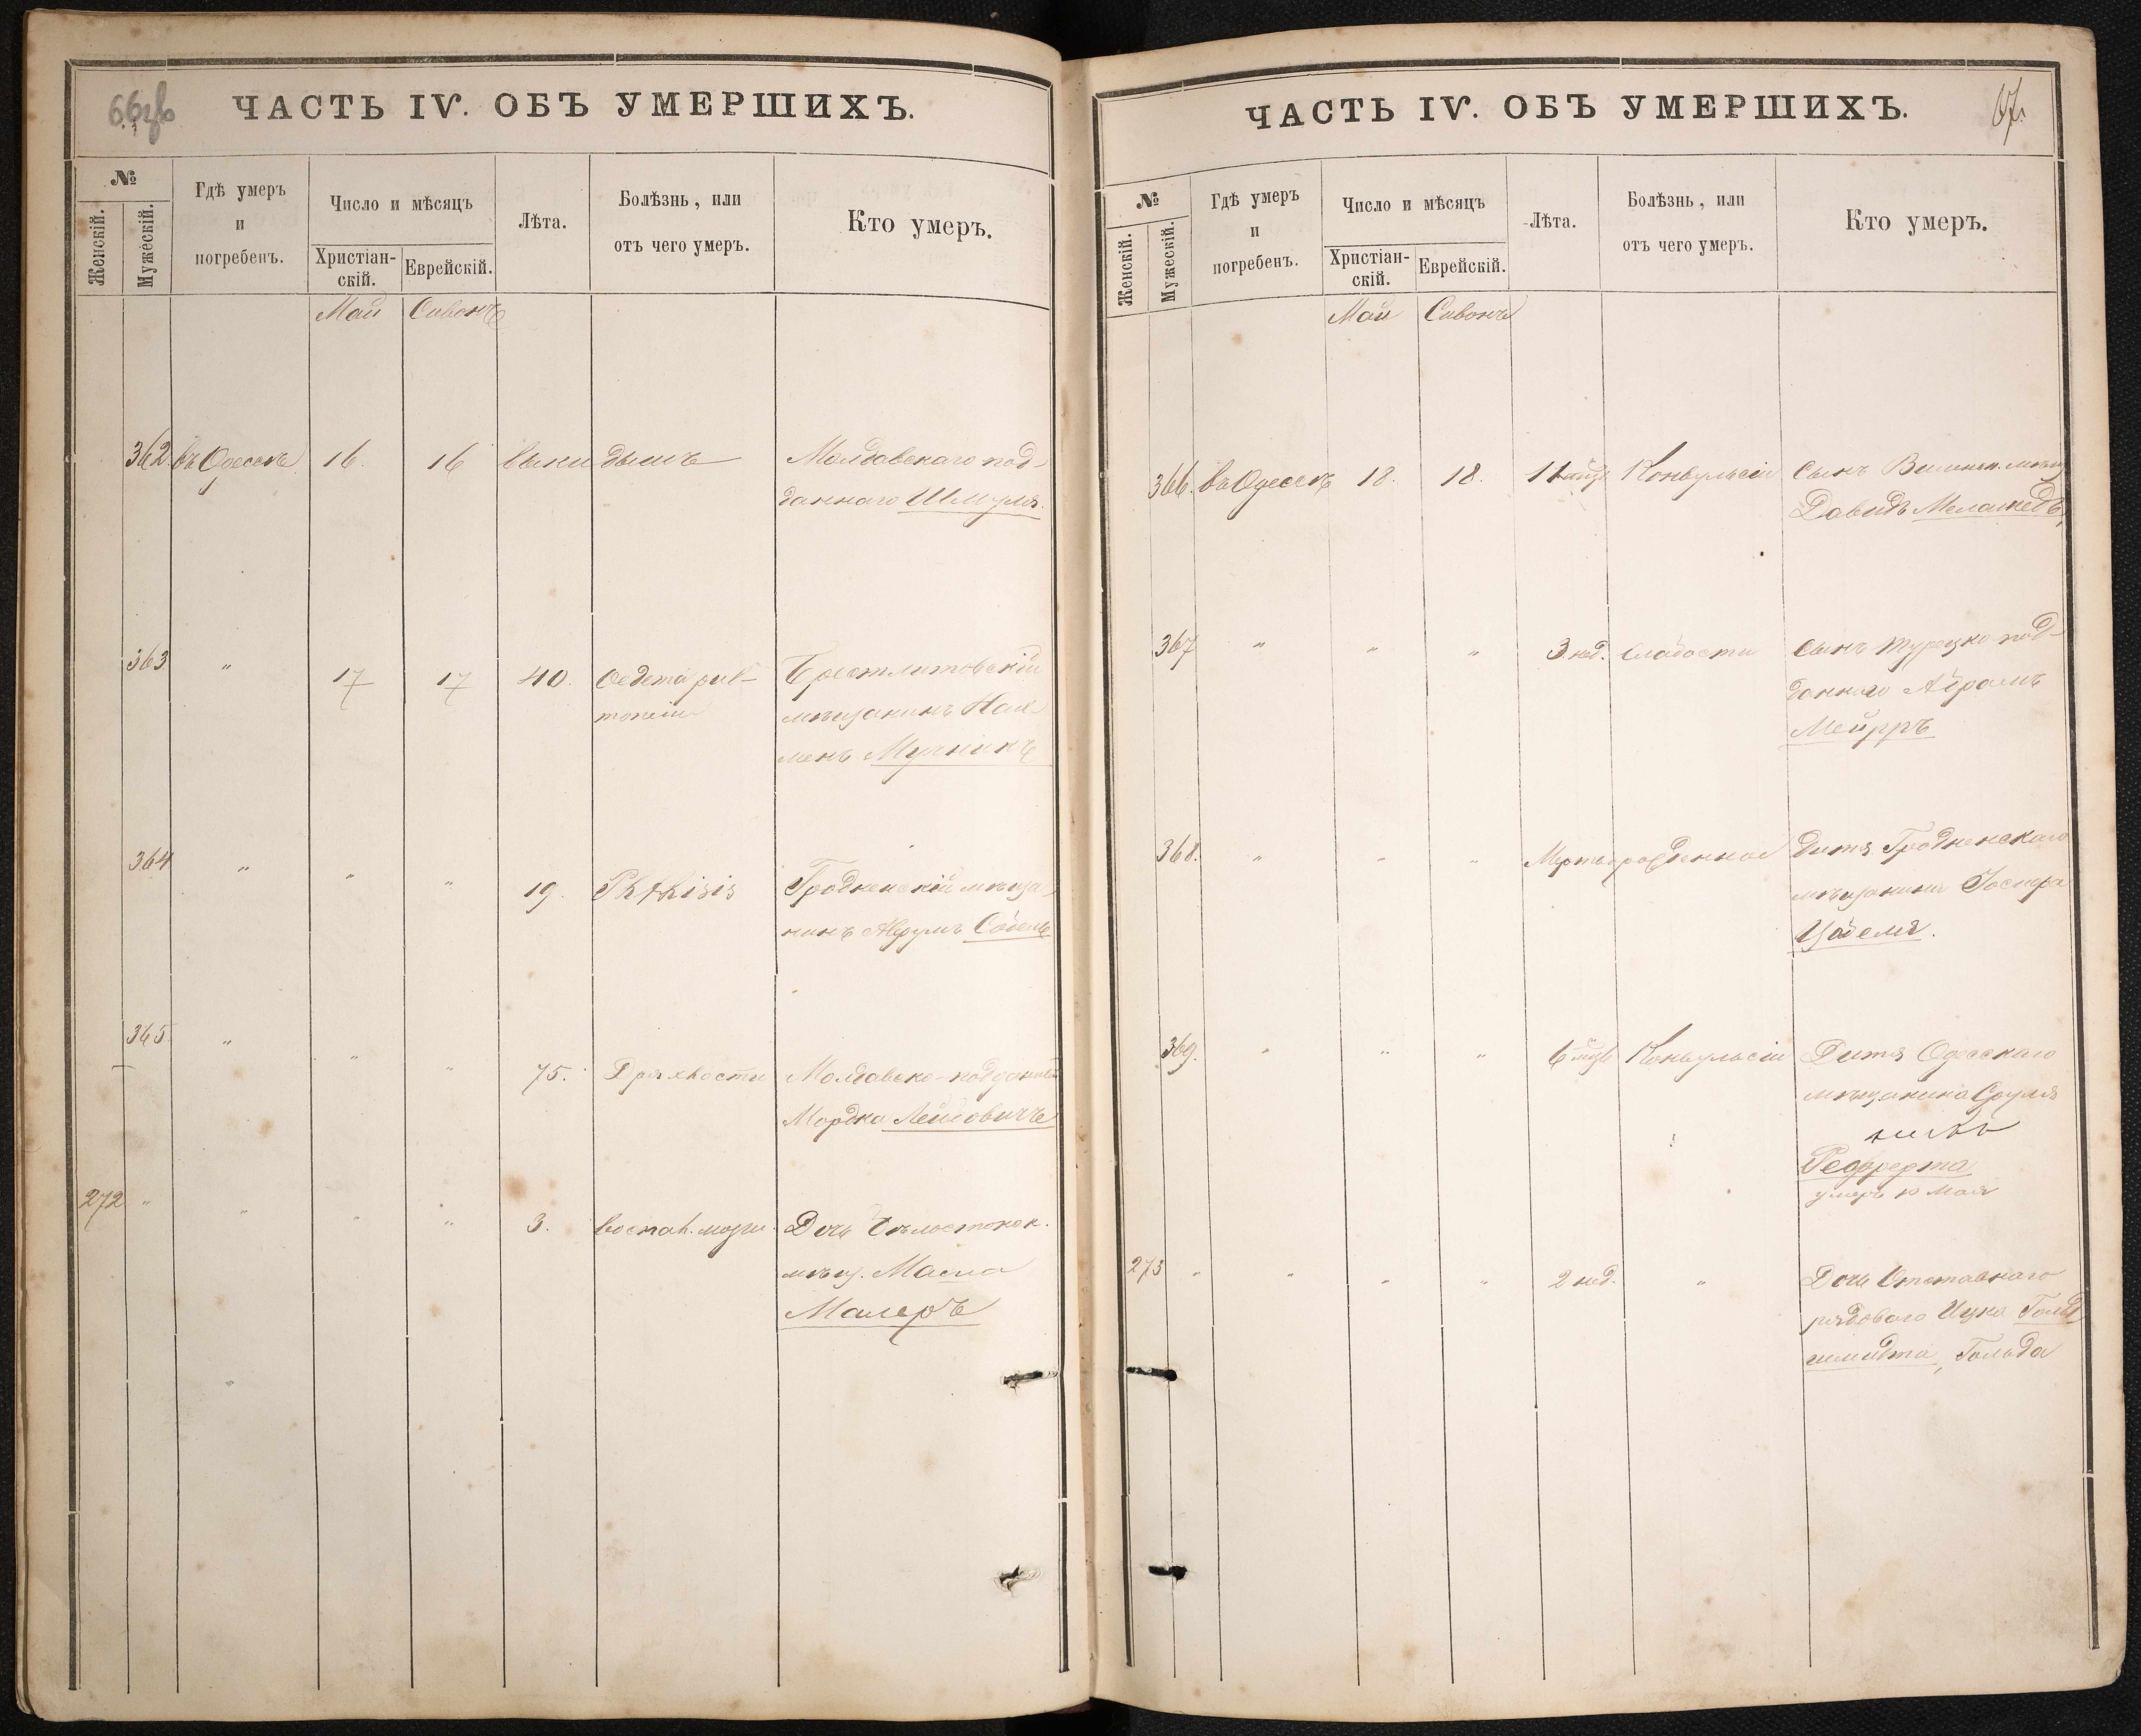 66об
ЧАСТЬ IV. ОБЪ УМЕРШИХЪ.
№
Женскій.
Мужескій.
Гдѣ умеръ
и
погребенъ.
Число и мѣсяцъ
Христіан-
скій.
Еврейскій.
Лѣта.
Болѣзнь, или
отъ чего умеръ.
Кто умеръ.
Май Сивонъ
362. въ Одессѣ 16. 16 выкидышъ Молдавскаго под-
даннаго Шмуля.
363 " 17 17 40. Oedema pul- Брестлитовскій
monum мѣщанинъ Нах-
менъ Мучникъ
364 " " " 19. Phthisis Гродненскій мѣща-
нинъ Аврумъ Собель
365. " " " 75. Дряхлости Молдавско-подданный
Мордко Лейбовичъ
272 " " " " 3. воспал. мозга. Дочь Бѣлостокск.
мѣщ. Масна
Малеръ
67.
ЧАСТЬ IV. ОБЪ УМЕРШИХЪ.
№
Женскій.
Мужескій.
Гдѣ умеръ
и
погребенъ.
Число и мѣсяцъ
Христіан-
скій.
Еврейскій.
Лѣта.
Болѣзнь, или
отъ чего умеръ.
Кто умеръ.
Май Сивонъ
366. въ Одессѣ 18. 18. 11 мцъ Конвульсіи Сынъ Виленск. мѣщ.
Давидъ Меламедъ,
367 " " " 3 нед. Слабости Сынъ Турецко-под-
даннаго Абрамъ
Мейеръ
368. " " " Мертворожденное Дитя Гродненскаго
мѣщанина Іоснфа
Цобеля.
369. " " " 6 мцъ Конвульсіи Дитя Одесскаго
мѣщанина Сруля
Гефферта
умеръ 10 Мая
273 " " " " 2 нед. " Дочь Отставнаго
рядоваго Ицка Гольд
шмидта, Гольда